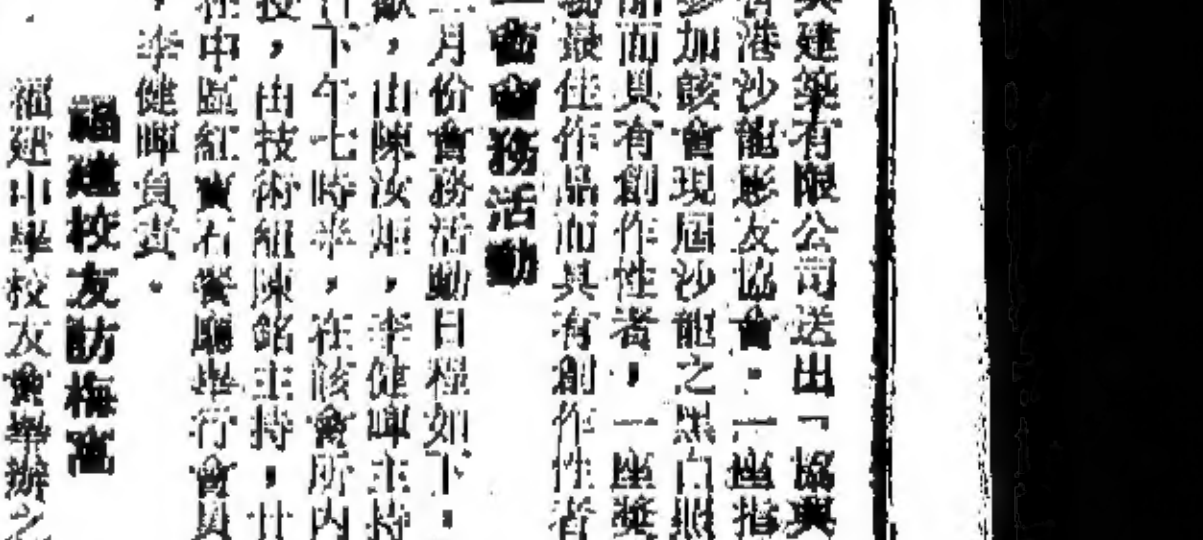 建築有限公司送出「協興
香港沙龍影友協會,一座指
參加該會現屆沙龍之黑白照
而具有創作性者,一座獎
最佳作品而具有創作性者
會會務活動
月份會務活動日程如下:
,由陳汝炬,李健暉主持
下午七時半,在該會所內
,由技術組陳銘主持,廿
在中區紅寶石餐廳舉行會員
,李健暉負責。
福建校友訪梅窩
福建中學校友會舉辦之